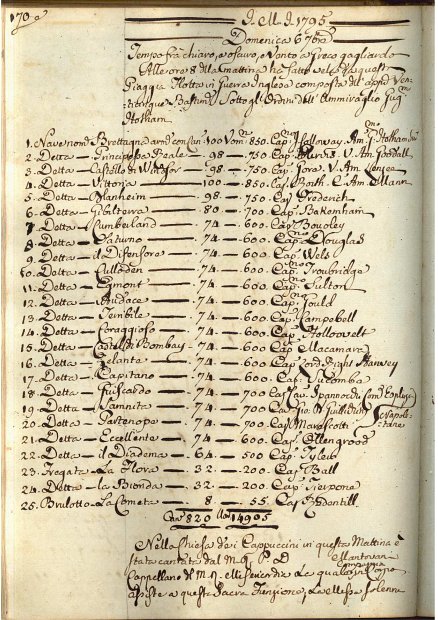 170
J. M. J. 1795
Domenica 6 7bre
Tempo frà chiaro, e oscuro, e Vento a Greco gagliardo
Alle ore 8 della mattina ha fatto vela da questa
Spiaggia Flotta in Guerra Inglese composta dell'apnd. Ven=
ticinque Bastim. sotto gl' Ordini dell' Ammiraglio Gug.mo
Hotham
1. Nave nom. Brettagna arm. con can. 100 Uom. 850. Cap. Holloway. Am. Hotham
2. Detta — Principessa Reale — 98 — 750. Cap. V. Am. Goodall
3. Detta — Castello di Windsor — 98 — 750. Cap. Gore. V. Am. Linzee
4. Detta — Vittoria — 100 — 850. Cap. C. Am. Mann
5. Detta — Blanheim — 98 — 750. Cap. Frederich
6. Detta — Gibilterra — 80 — 700. Cap. Pakemham
7. Detta — Cumberland — 74 — 600. Cap. Rowley
8. Detta — Saturno — 74 — 600. Cap. Douglas
9. Detta — Il Difensore — 74 — 600. Cap. Wels
10. Detta — Culloden — 74 — 600. Cap. Troubridge
11. Detta — Egmont — 74 — 600. Cap. Sutton
12. Detta — Audace — 74 — 600. Cap. Gould
13. Detta — Terribile — 74 — 600. Cap. Campobell
14. Detta — Coraggioso — 74 — 600. Cap. Hollowelt
15. Detta — Castel di Bombay — 74 — 600. Cap. Macamara
16. Detta — Zelanta — 74 — 600. Cap. Lord Hervey
17. Detta — Capitano — 74 — 600. Cap.
18. Detta — Guiscardo — 74 — 700. Cav. Spannocchi
19. Detta — Sannita — 74 — 700. Cav. Gio.
20. Detta — Partenope — 74 — 700. Cap. Marescotti Napole=
tane
21. Detta — Eccellente — 74 — 600. Cap.
22. Detta — il Diadema — 64 — 500. Cap. Tyler
23. Fregata — La Flora — 32 — 200. Cap. Ball
24. Detta — la Bionda — 32 — 200. Cap. Pierpona
25. Brulotto — La Cometa — 8 — 55. Cap.
820 14905
Nella Chiesa dei Cappuccini in questa Mattina è
stata cantata dal M. P. D. Mantovan
Cappellano la quale in Corpo
assiste a questa Sacra Funzione, la Messa solenne